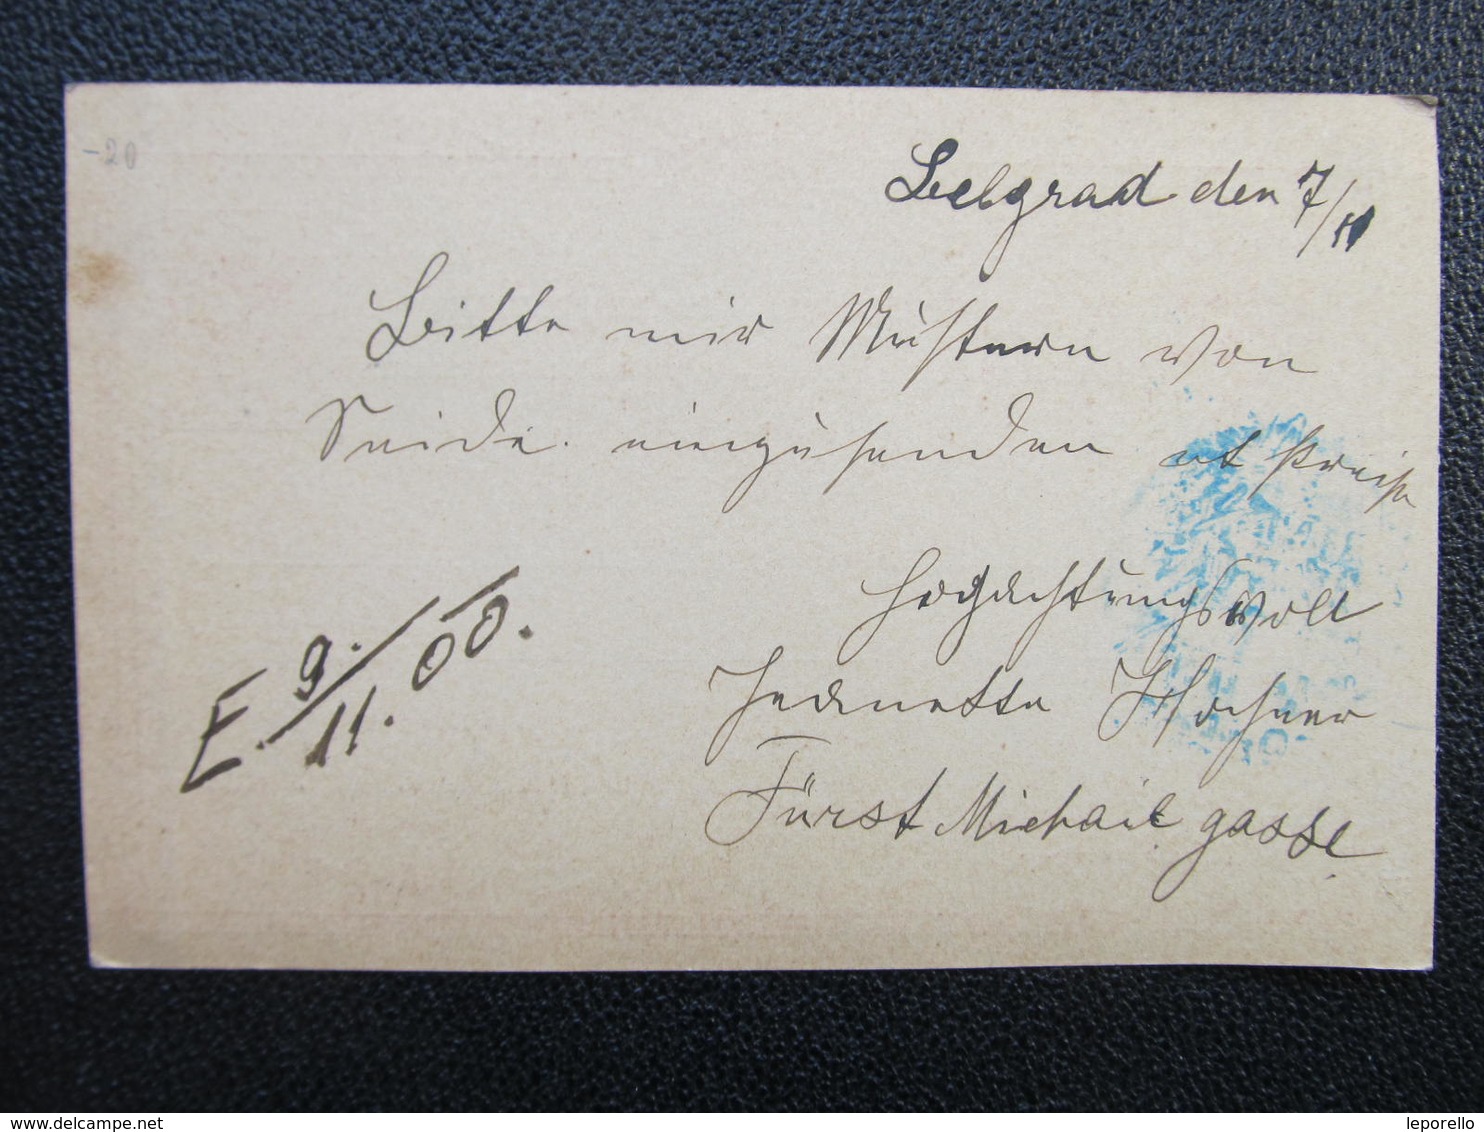 -20
Belgrad den 7/11
Bitte mir Mustern von
Seide einzusenden et Preise
Hogachtungsvoll
Jeanette
Fürst Michail gasse
E. 9./11. 00.
delcampe.net
leporello